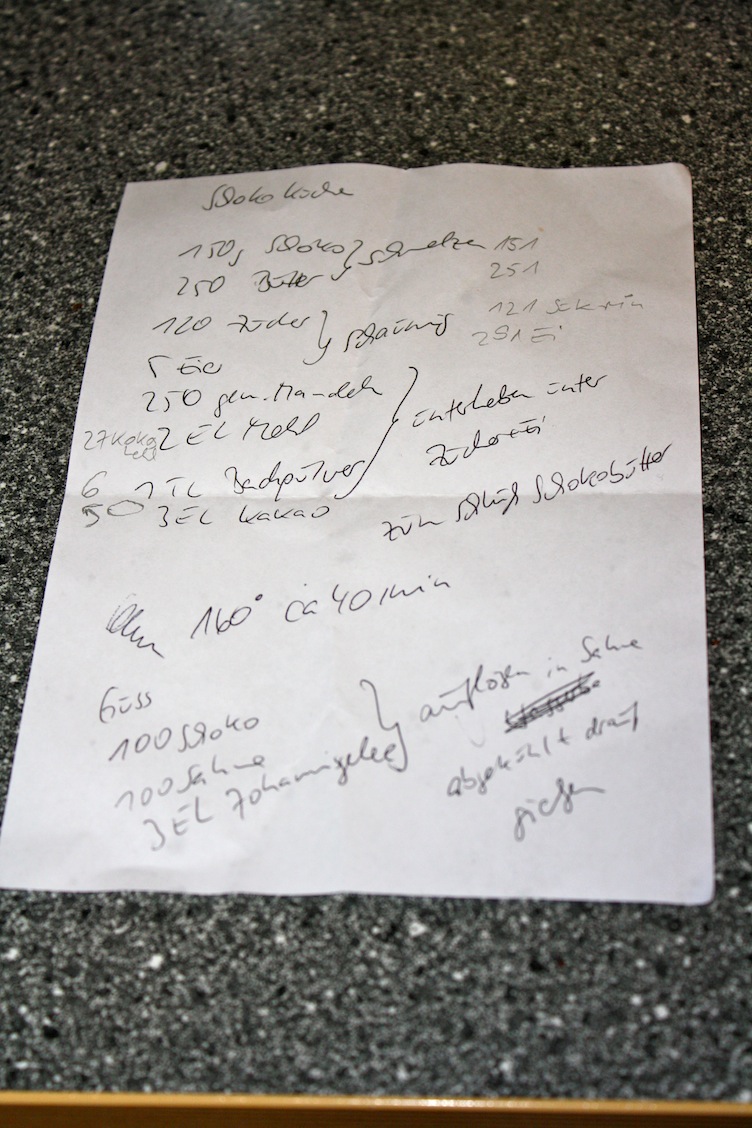 Schoko Kuche
150g Schoko } schmelzen 151
250 Butter 251
120 Zucker } schaumig 121
5 Eier 291 Ei
250 gem. Mandeln
27 Koko Mehl 2 EL Mehl } unterheben unter
6 1 TL Backpulver Zuckerei
50 3 EL Kakao zum Schluß Schokobutter
160° ca 40 min
Guss
100 Schoko } auflösen in Sahne
100 Sahne
3 EL Johannisgelee abgekühlt drauf
gießen